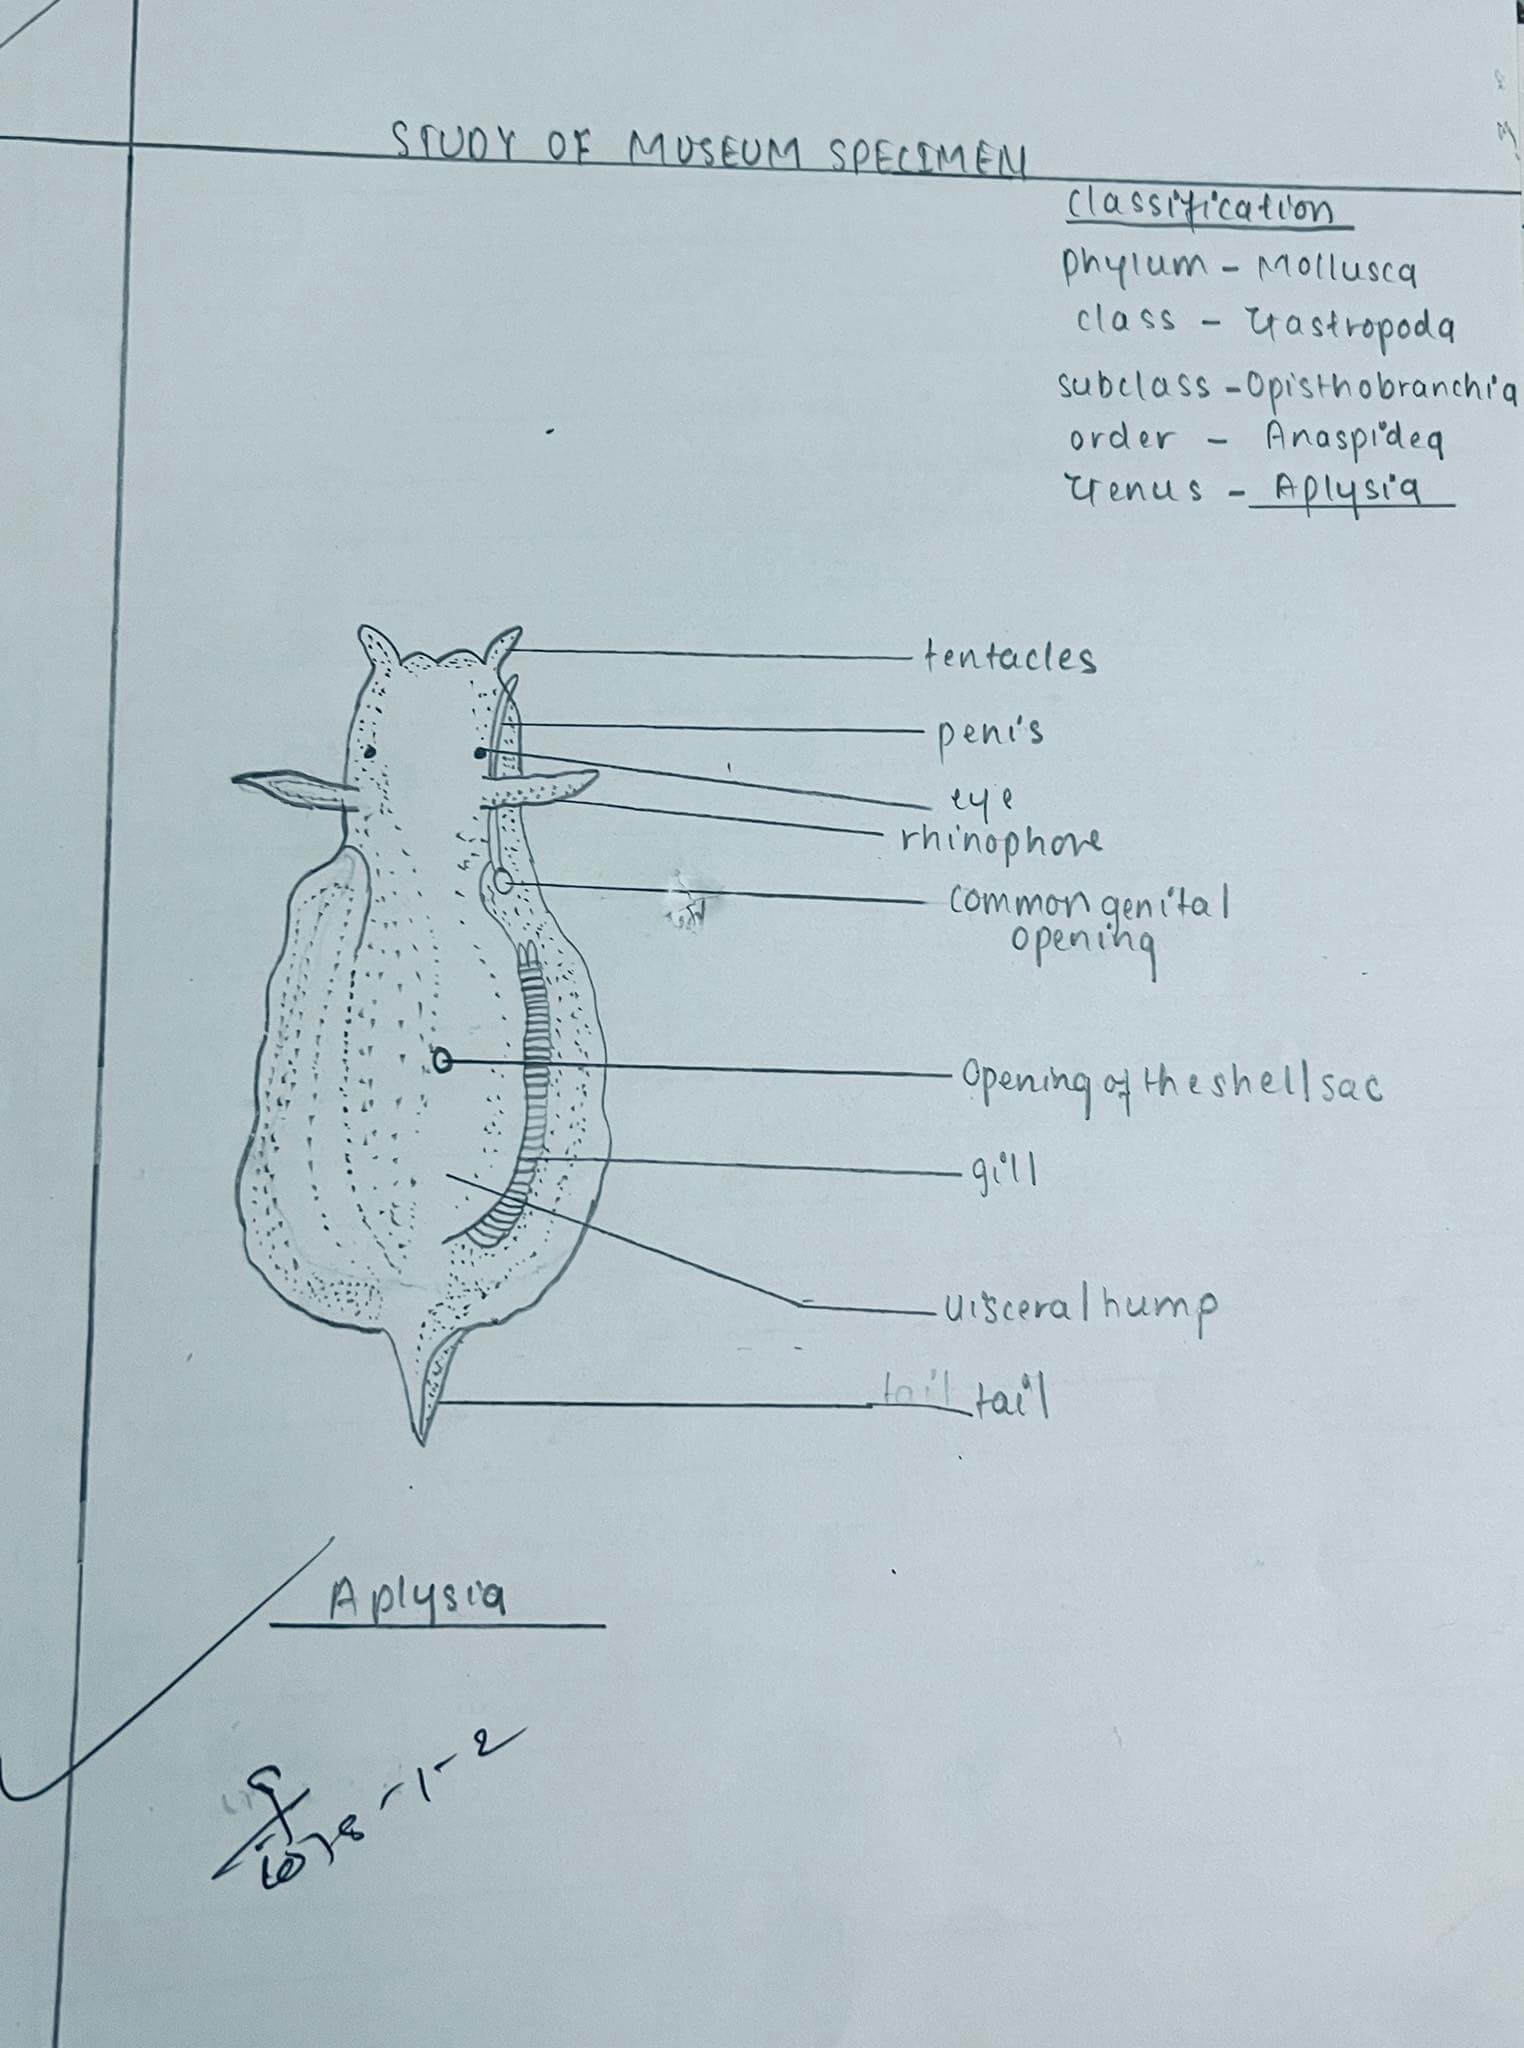 STUDY OF MUSEUM SPECIMEN
Classification
Phylum - Mollusca
class - Gastropoda
subclass - Opisthobranchia
order - Anaspidea
Genus - Aplysia
tentacles
penis
eye
rhinophore
common genital
opening
Opening of the shell sac
gill
visceral hump
tail tail
Aplysia